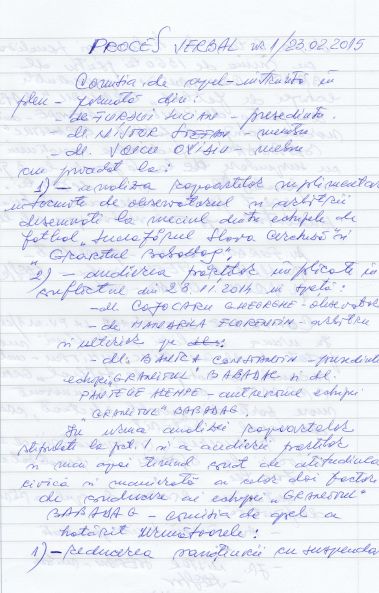 PROCES VERBAL nr. 1/23.02.2015
Comisia de apel - întrunită în
plen - formată din:
- dl. TURSUI LUCIAN - președinte
- dl. NISTOR STEFAN - membru
- dl. VOICU OVIDIU - membru
au procedat la:
1) - analiza rapoartelor suplimentare
întocmite de observatorul și arbitrii
desemnați la meciul dintre echipele de
fotbal „Luceafărul Slava Cercheză” și
„Granitul Babadag”;
2) - audierea părților implicate în
conflictul din 23.11.2014 în speță:
- dl. COJOCARU GHEORGHE - observator
- dl. MANDRILA FLORENTIN - arbitru
și ulterior pe
- dl. BANICA CONSTANTIN - președinte
echipei „GRANITUL” BABADAG și dl.
- antrenorul echipei
„GRANITUL” BABADAG.
În urma analizei rapoartelor
stipulate la pct. 1 și a audierii părților
și mai apoi ținând cont de atitudinea
civică și manierată a celor doi factori
de conducere ai echipei „GRANITUL”
BABADAG - comisia de apel a
hotărât următoarele:
1) - reducerea sancțiunii cu suspendarea